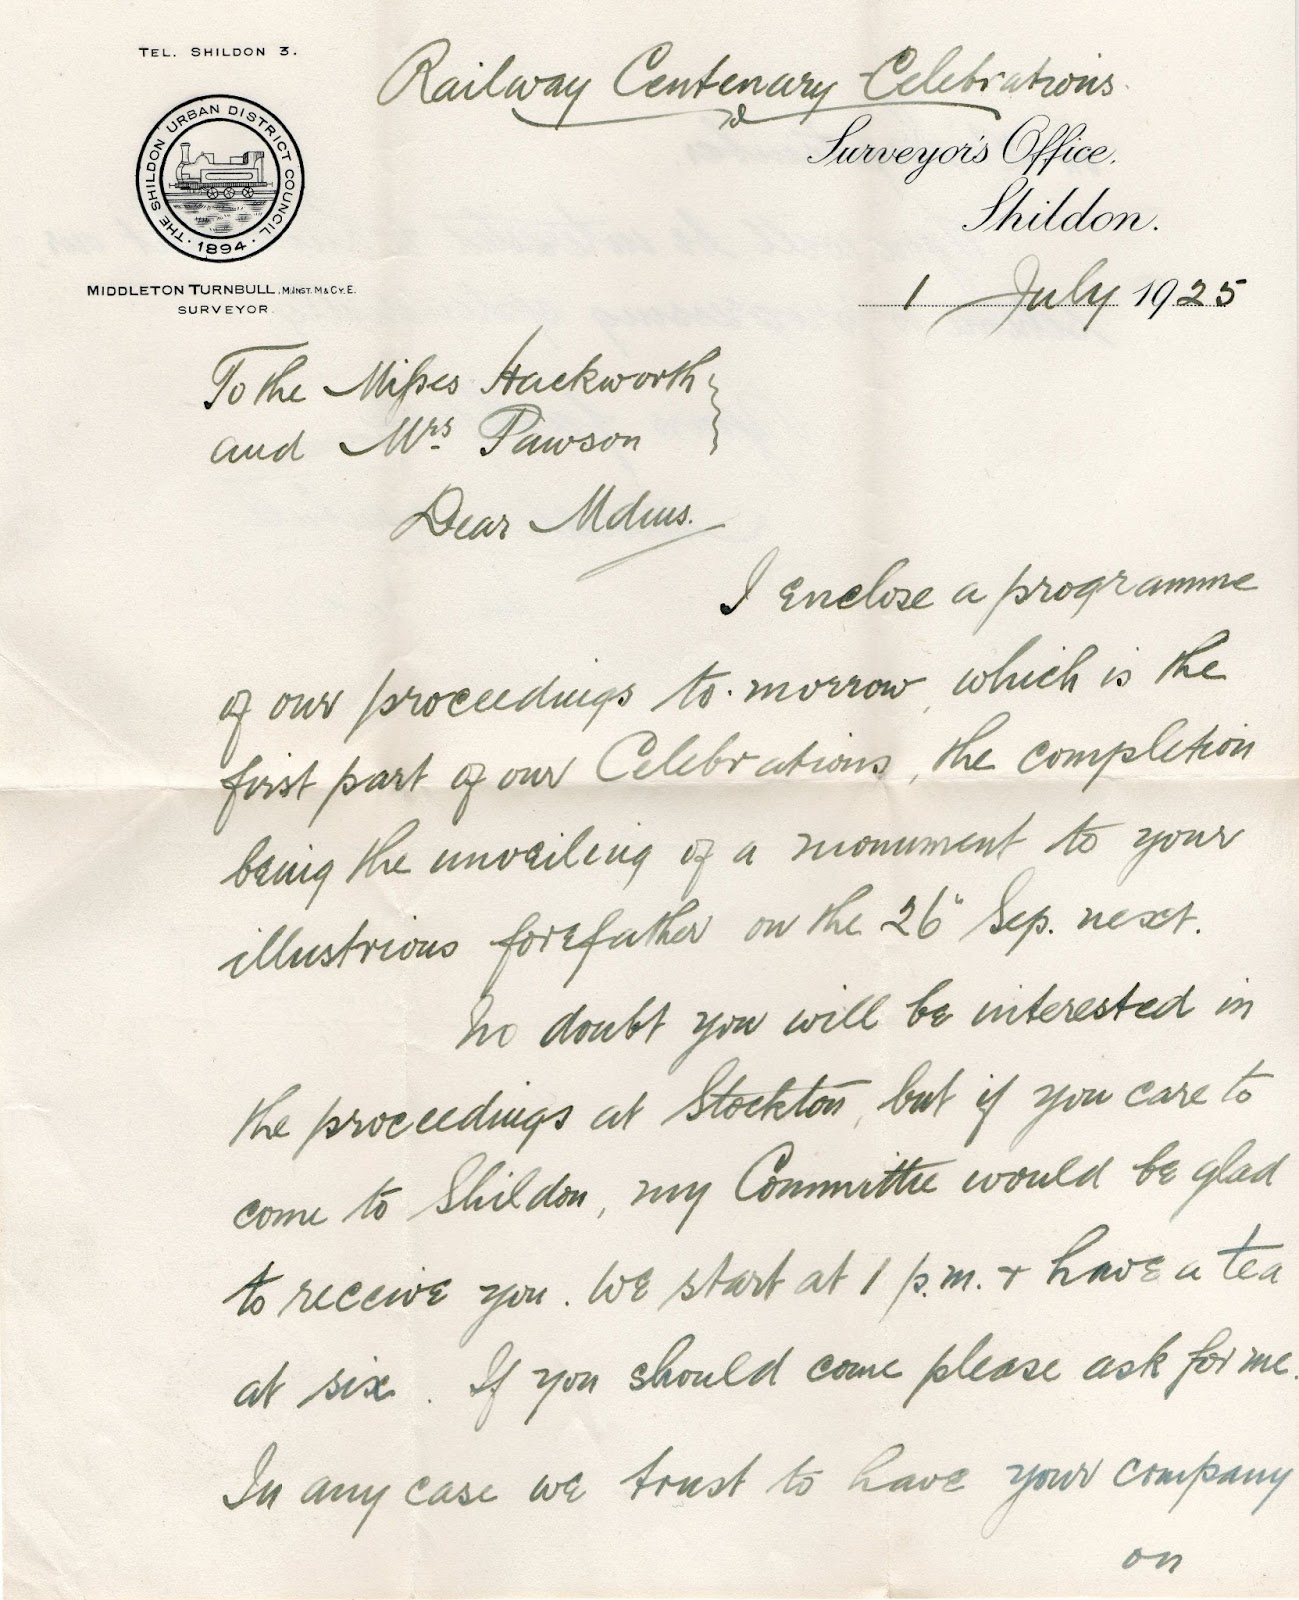 TEL. SHILDON 3.
Railway Centenary Celebrations.
THE SHILDON URBAN DISTRICT COUNCIL
· 1894 ·
Surveyor's Office,
Shildon.
MIDDLETON TURNBULL, M.INST. M & CY. E.
SURVEYOR.
1 July 1925
To the Misses Hackworth
and Mrs Pawson
Dear Mdms.
I enclose a programme
of our proceedings to-morrow, which is the
first part of our Celebrations, the completion
being the unveiling of a monument to your
illustrious forefather on the 26" Sep. next.
No doubt you will be interested in
the proceedings at Stockton, but if you care to
come to Shildon, my Committee would be glad
to receive you. We start at 1 p.m. + have a tea
at six. If you should come please ask for me.
In any case we trust to have your company
on